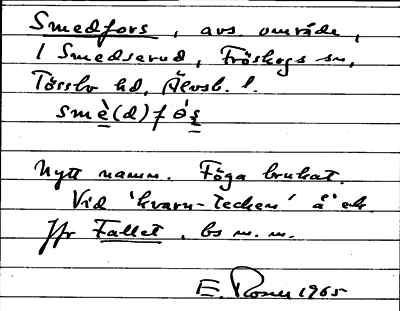 Smedfors, avs. område,
i Smedserud, Fröskogs sn,
Tössbo hd, Älvsb. l.
smè(d)fo̊ʂ
Nytt namn. Föga brukat.
Vid 'kvarn-tecken' å ek.
Jfr Fallet, bs m.m.
E. Rosell 1965